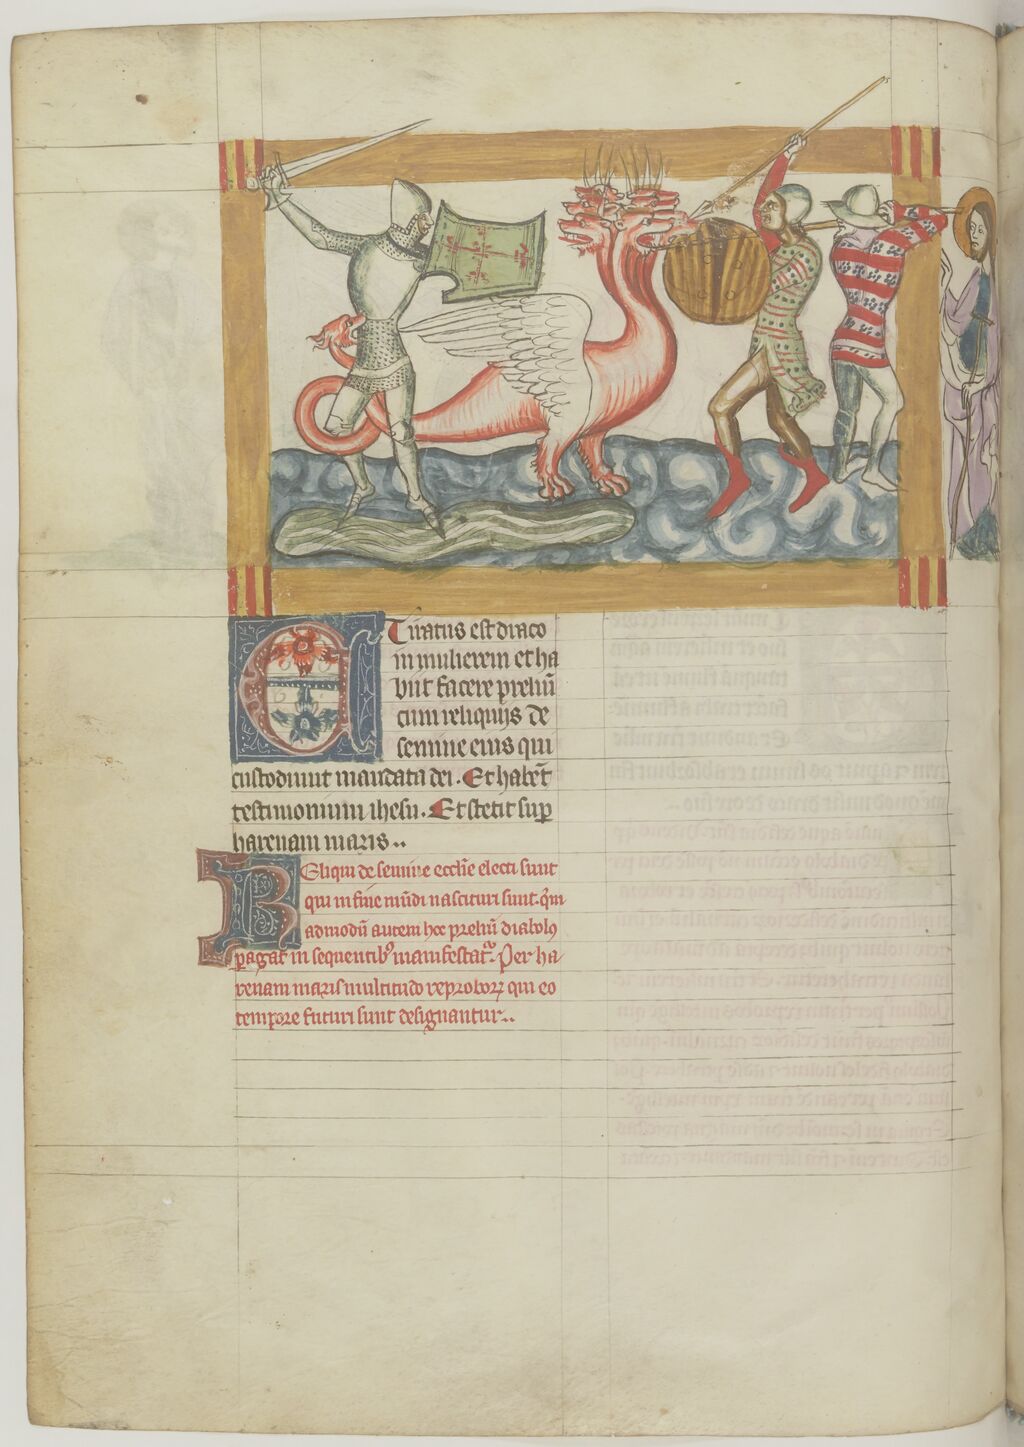 Et iratus est draco
in mulierem et ha
buit facere preliū
cum reliquijs de
semine eius qui
custodiunt mandata dei. Et habēt
testimonium ihesu. Et stetit sup
harenam maris..
Reliqui de semine ecclīe electi sunt
qui in fine mūdi nascituri sunt. Qm̄
admodū autem hoc preliū diabolꝰ
ꝑagat in sequentibꝰ manifestat᷑. Per ha
renam maris multitudo reproboꝝ qui eo
tempore futuri sunt designantur..